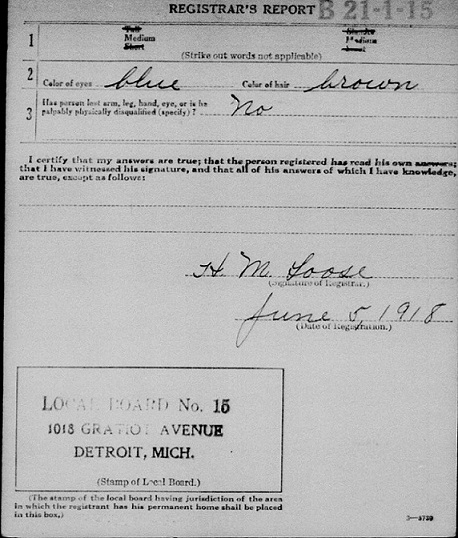 REGISTRAR'S REPORT B 21-1-15
1 Tall Medium Short Slender Medium Stout
(Strike out words not applicable)
2 Color of eyes blue Color of hair brown
3 Has person lost arm, leg, hand, eye, or is he
palpably physically disqualified (specify)? No
I certify that my answers are true; that the person registered has read his own answers;
that I have witnessed his signature, and that all of his answers of which I have knowledge,
are true, except as follows:
H. M. Loose
(Signature of Registrar.)
June 5, 1918
(Date of Registration.)
LOCAL BOARD No. 15
1018 GRATIOT AVENUE
DETROIT, MICH.
(Stamp of Local Board.)
(The stamp of the local board having jurisdiction of the area
in which the registrant has his permanent home shall be placed
in this box.)